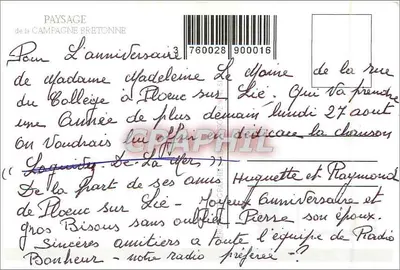 PAYSAGE
de la CAMPAGNE BRETONNE
3 760028 900016
Pour L'anniversaire
de Madame Madeleine Le Moine de la rue
du Collège à Ploeuc sur Lié. Qui va prendre
une Année de plus demain lundi 27 aout
on Voudrais lui offrir en dédicace la chanson
"Laquita De La Mer"
De la part de ses amis Huguette et Raymond
de Ploeuc sur Lié - Joyeux Anniversaire et
gros Bisous sans oublier Pierre son époux.
Sincères amitiers a toute l'équipe de Radio
Bonheur - notre radio préférée - !